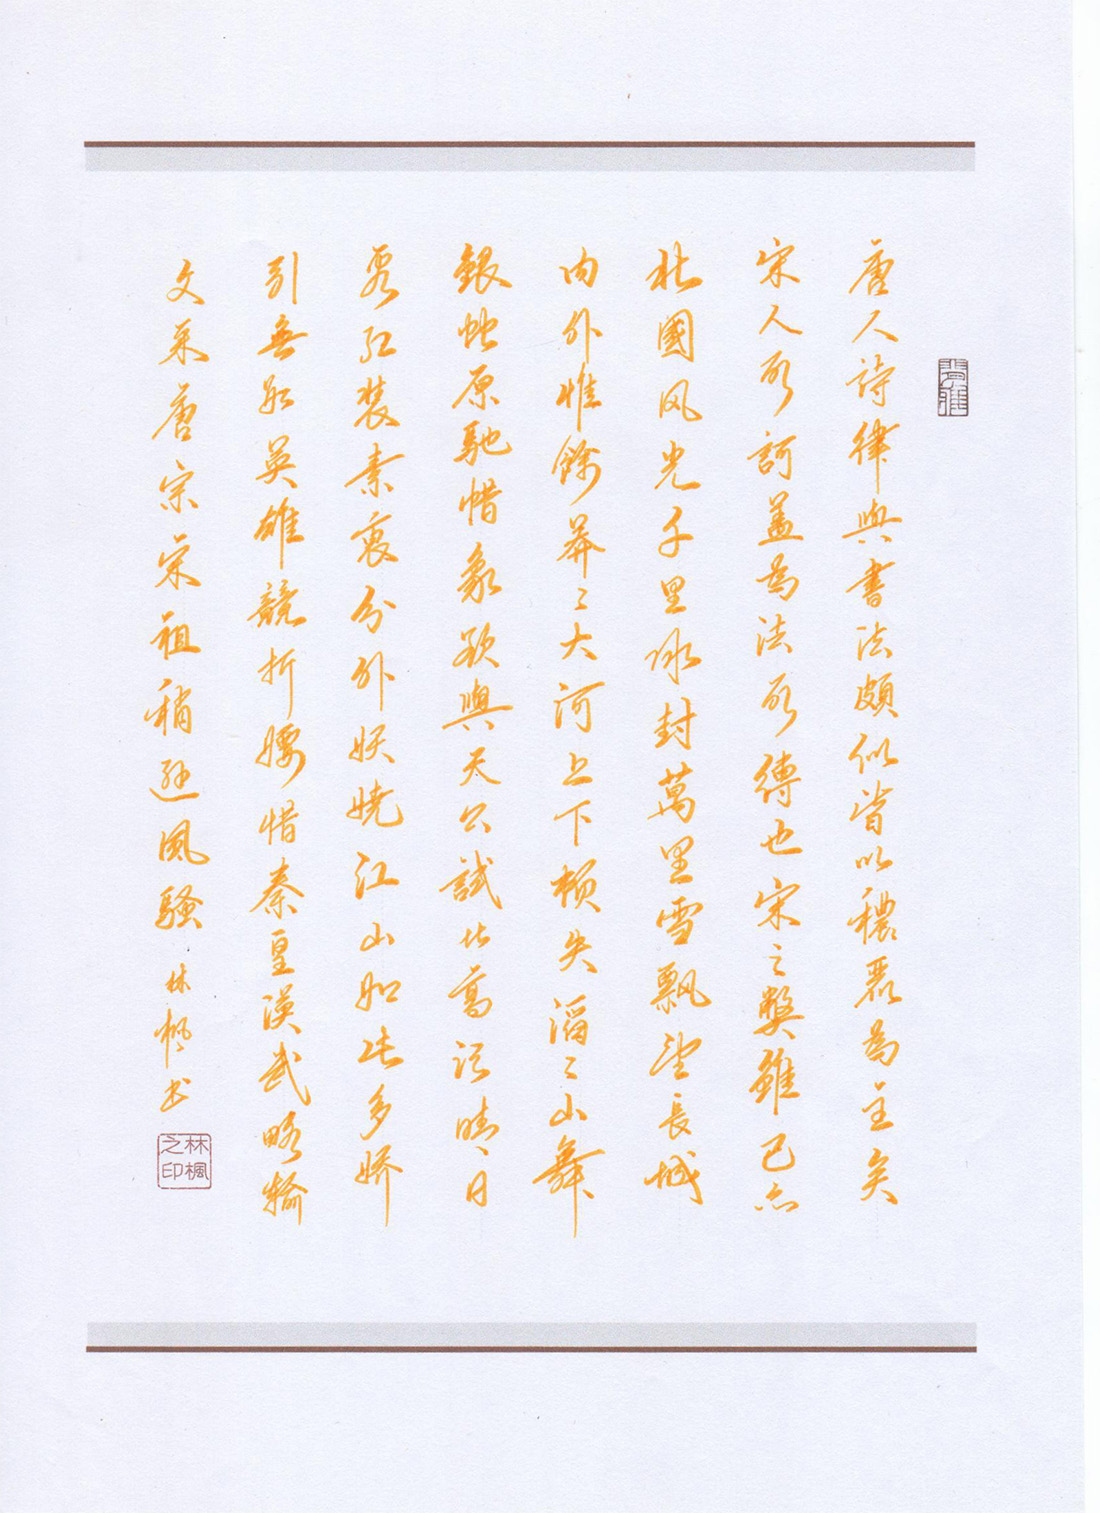 唐人詩律與書法頗似皆以穠麗為主矣
宋人所訶蓋為法所縛也宋之弊雖已亦
北國风光千里冰封萬里雪飄望長城
内外惟餘莽〻大河上下頓失滔〻山舞
銀蛇原馳惜象欲與天公試比高须晴日
看红裝素裹分外妖嬈江山如此多娇
引無数英雄競折腰惜秦皇漢武略輸
文采唐宗宋祖稍逊風騷 林枫书
林楓之印